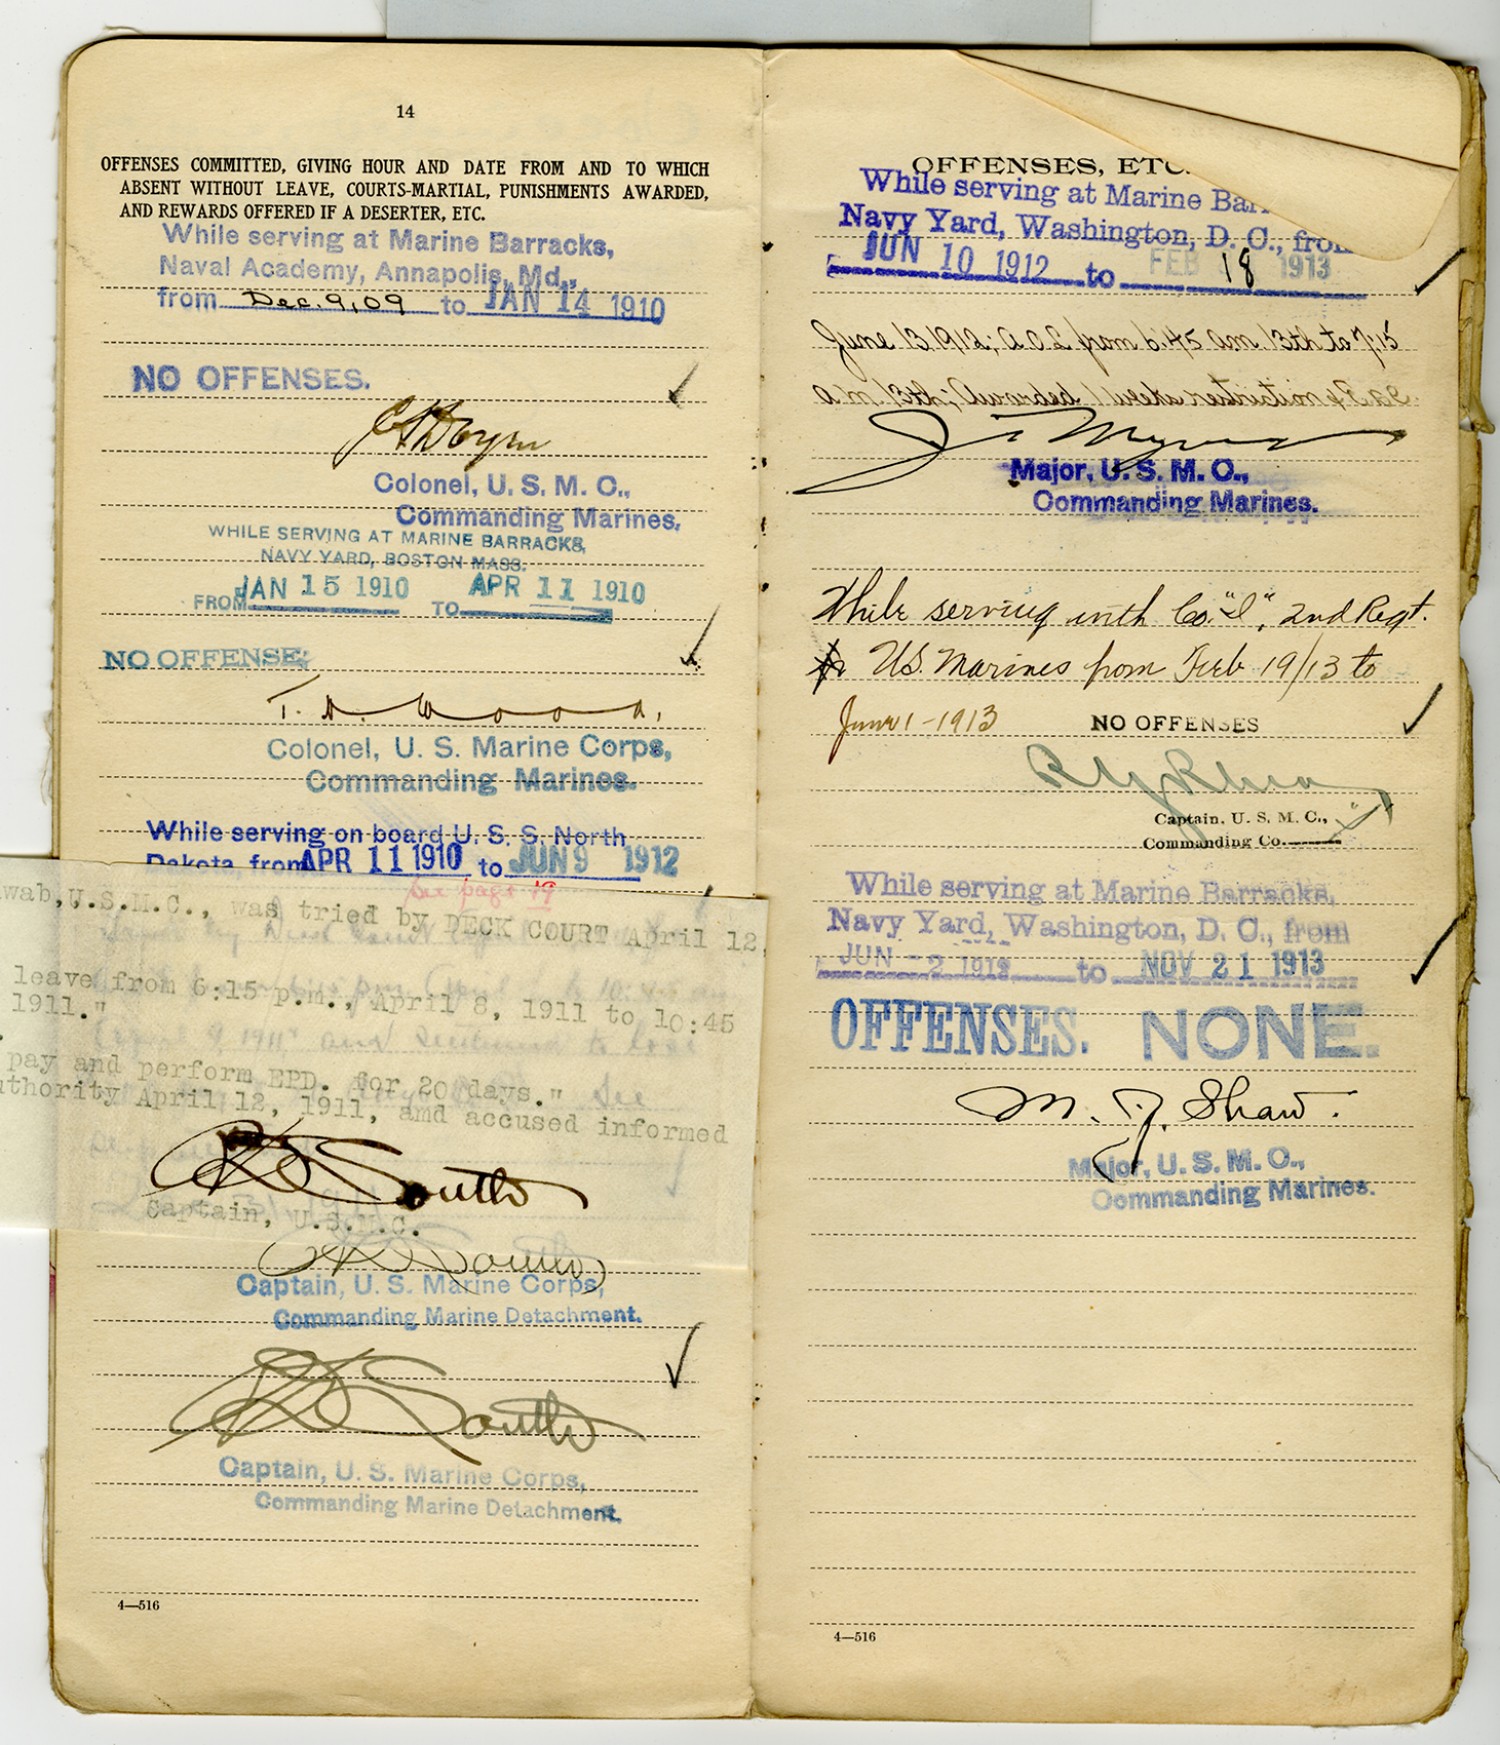 14
OFFENSES COMMITTED, GIVING HOUR AND DATE FROM AND TO WHICH
ABSENT WITHOUT LEAVE, COURTS-MARTIAL, PUNISHMENTS AWARDED,
AND REWARDS OFFERED IF A DESERTER, ETC.
While serving at Marine Barracks,
Naval Academy, Annapolis, Md.,
from Dec. 9, 09 to JAN 14 1910
NO OFFENSES.
Colonel, U. S. M. C.,
Commanding Marines.
WHILE SERVING AT MARINE BARRACKS,
NAVY YARD, BOSTON MASS.
FROM JAN 15 1910 TO APR 11 1910
NO OFFENSE
T. N. Wood,
Colonel, U. S. Marine Corps,
Commanding Marines.
While serving on board U. S. S. North
Dakota, from APR 11 1910 to JUN 9 1912
See page 19
wab, U.S.M.C., was tried by DECK COURT April 12,
leave from 6:15 p.m., April 8, 1911 to 10:45
1911."
pay and perform EPD. for 20 days." See
uthority April 12, 1911, amd accused informed
South
Captain, U.S.M.C.
South
Captain, U. S. Marine Corps,
Commanding Marine Detachment.
South
Captain, U. S. Marine Corps,
Commanding Marine Detachment.
4—516
OFFENSES, ETC.
While serving at Marine Bar
Navy Yard, Washington, D. C., from
JUN 10 1912 to FEB 18 1913
June 13, 1912; A.O.L. from 6:45 am 13th to 7:15
a m 13th; Awarded 1 weeks restriction
Major, U. S. M. C.,
Commanding Marines.
While serving with Co. "I", 2nd Regt.
U.S. Marines from Feb 19/13 to
June 1 - 1913
NO OFFENSES
Captain, U. S. M. C.,
Commanding Co. "I"
While serving at Marine Barracks,
Navy Yard, Washington, D. C., from
JUN - 2 1913 to NOV 21 1913
OFFENSES. NONE.
M. J. Shaw.
Major, U. S. M. C.,
Commanding Marines.
4—516